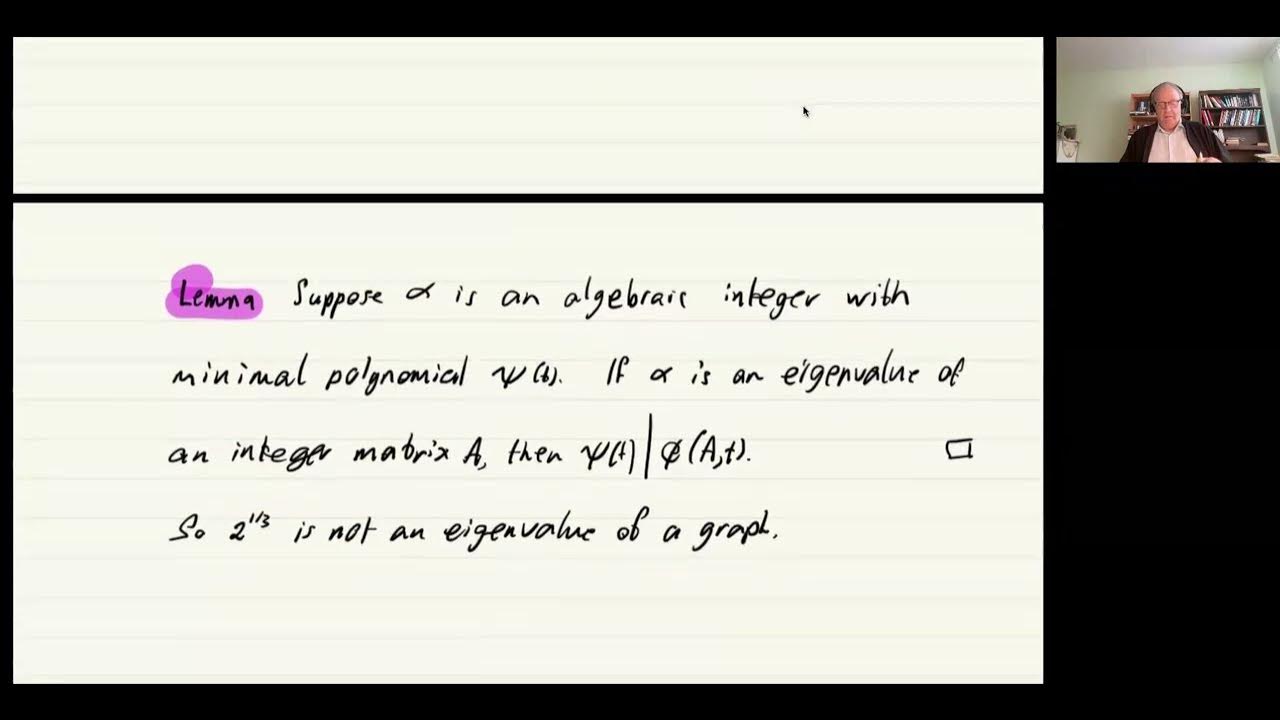 Lemma Suppose α is an algebraic integer with
minimal polynomial ψ(t). If α is an eigenvalue of
an integer matrix A, then ψ(t) | ϕ(A,t). □
So 2^{1/3} is not an eigenvalue of a graph.